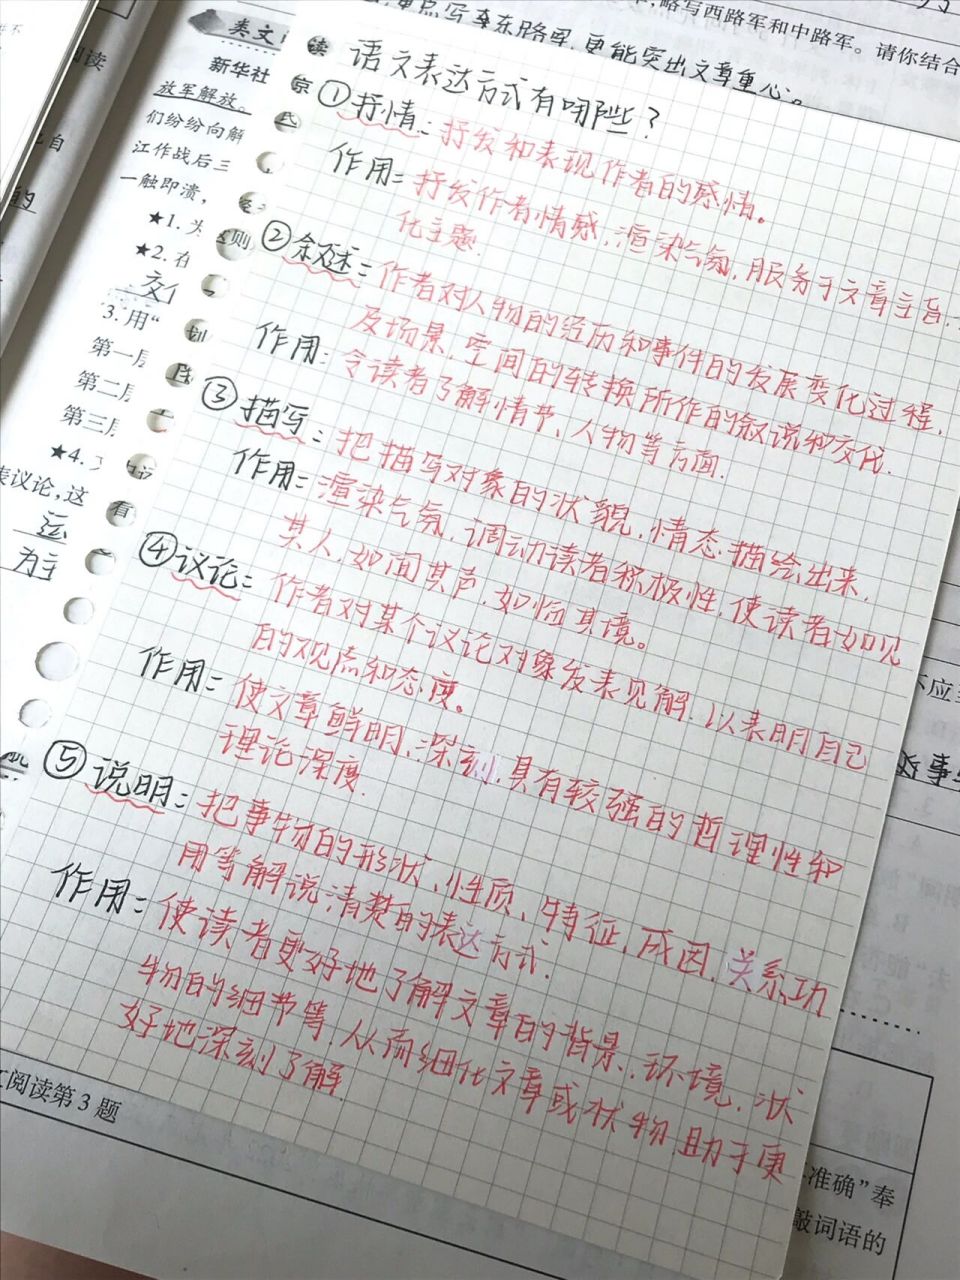 ,略写西路军和中路军。请你结合
重点写东路军,更能突出文章重心。
类文
新华社
放军解放。
们纷纷向解
江作战后三
一触即溃,
★1.
★2. 在
3. 用“
第一层
第二层
第三层
★4.
表议论,这
为主
语文表达方式有哪些?
①抒情:抒发和表现作者的感情。
作用:抒发作者情感,渲染气氛,服务于文章主旨,
化主题.
②叙述:作者对人物的经历和事件的发展变化过程,
及场景,空间的转换所作的叙说和交代.
作用:令读者了解情节、人物等方面.
③描写:把描写对象的状貌,情态描绘出来,
作用:渲染气氛,调动读者积极性,使读者如见
其人,如闻其声,如临其境。
④议论:作者对某个议论对象发表见解,以表明自己
的观点和态度。
作用:使文章鲜明、深刻,具有较强的哲理性和
理论深度.
⑤说明:把事物的形状、性质、特征,成因,关系功
用等解说清楚的表达方式.
作用:使读者更好地了解文章的背景、环境,状
物的细节等,从而细化文章或状物,助于更
好地深刻了解.
阅读第3题
准确”奉
敲词语的